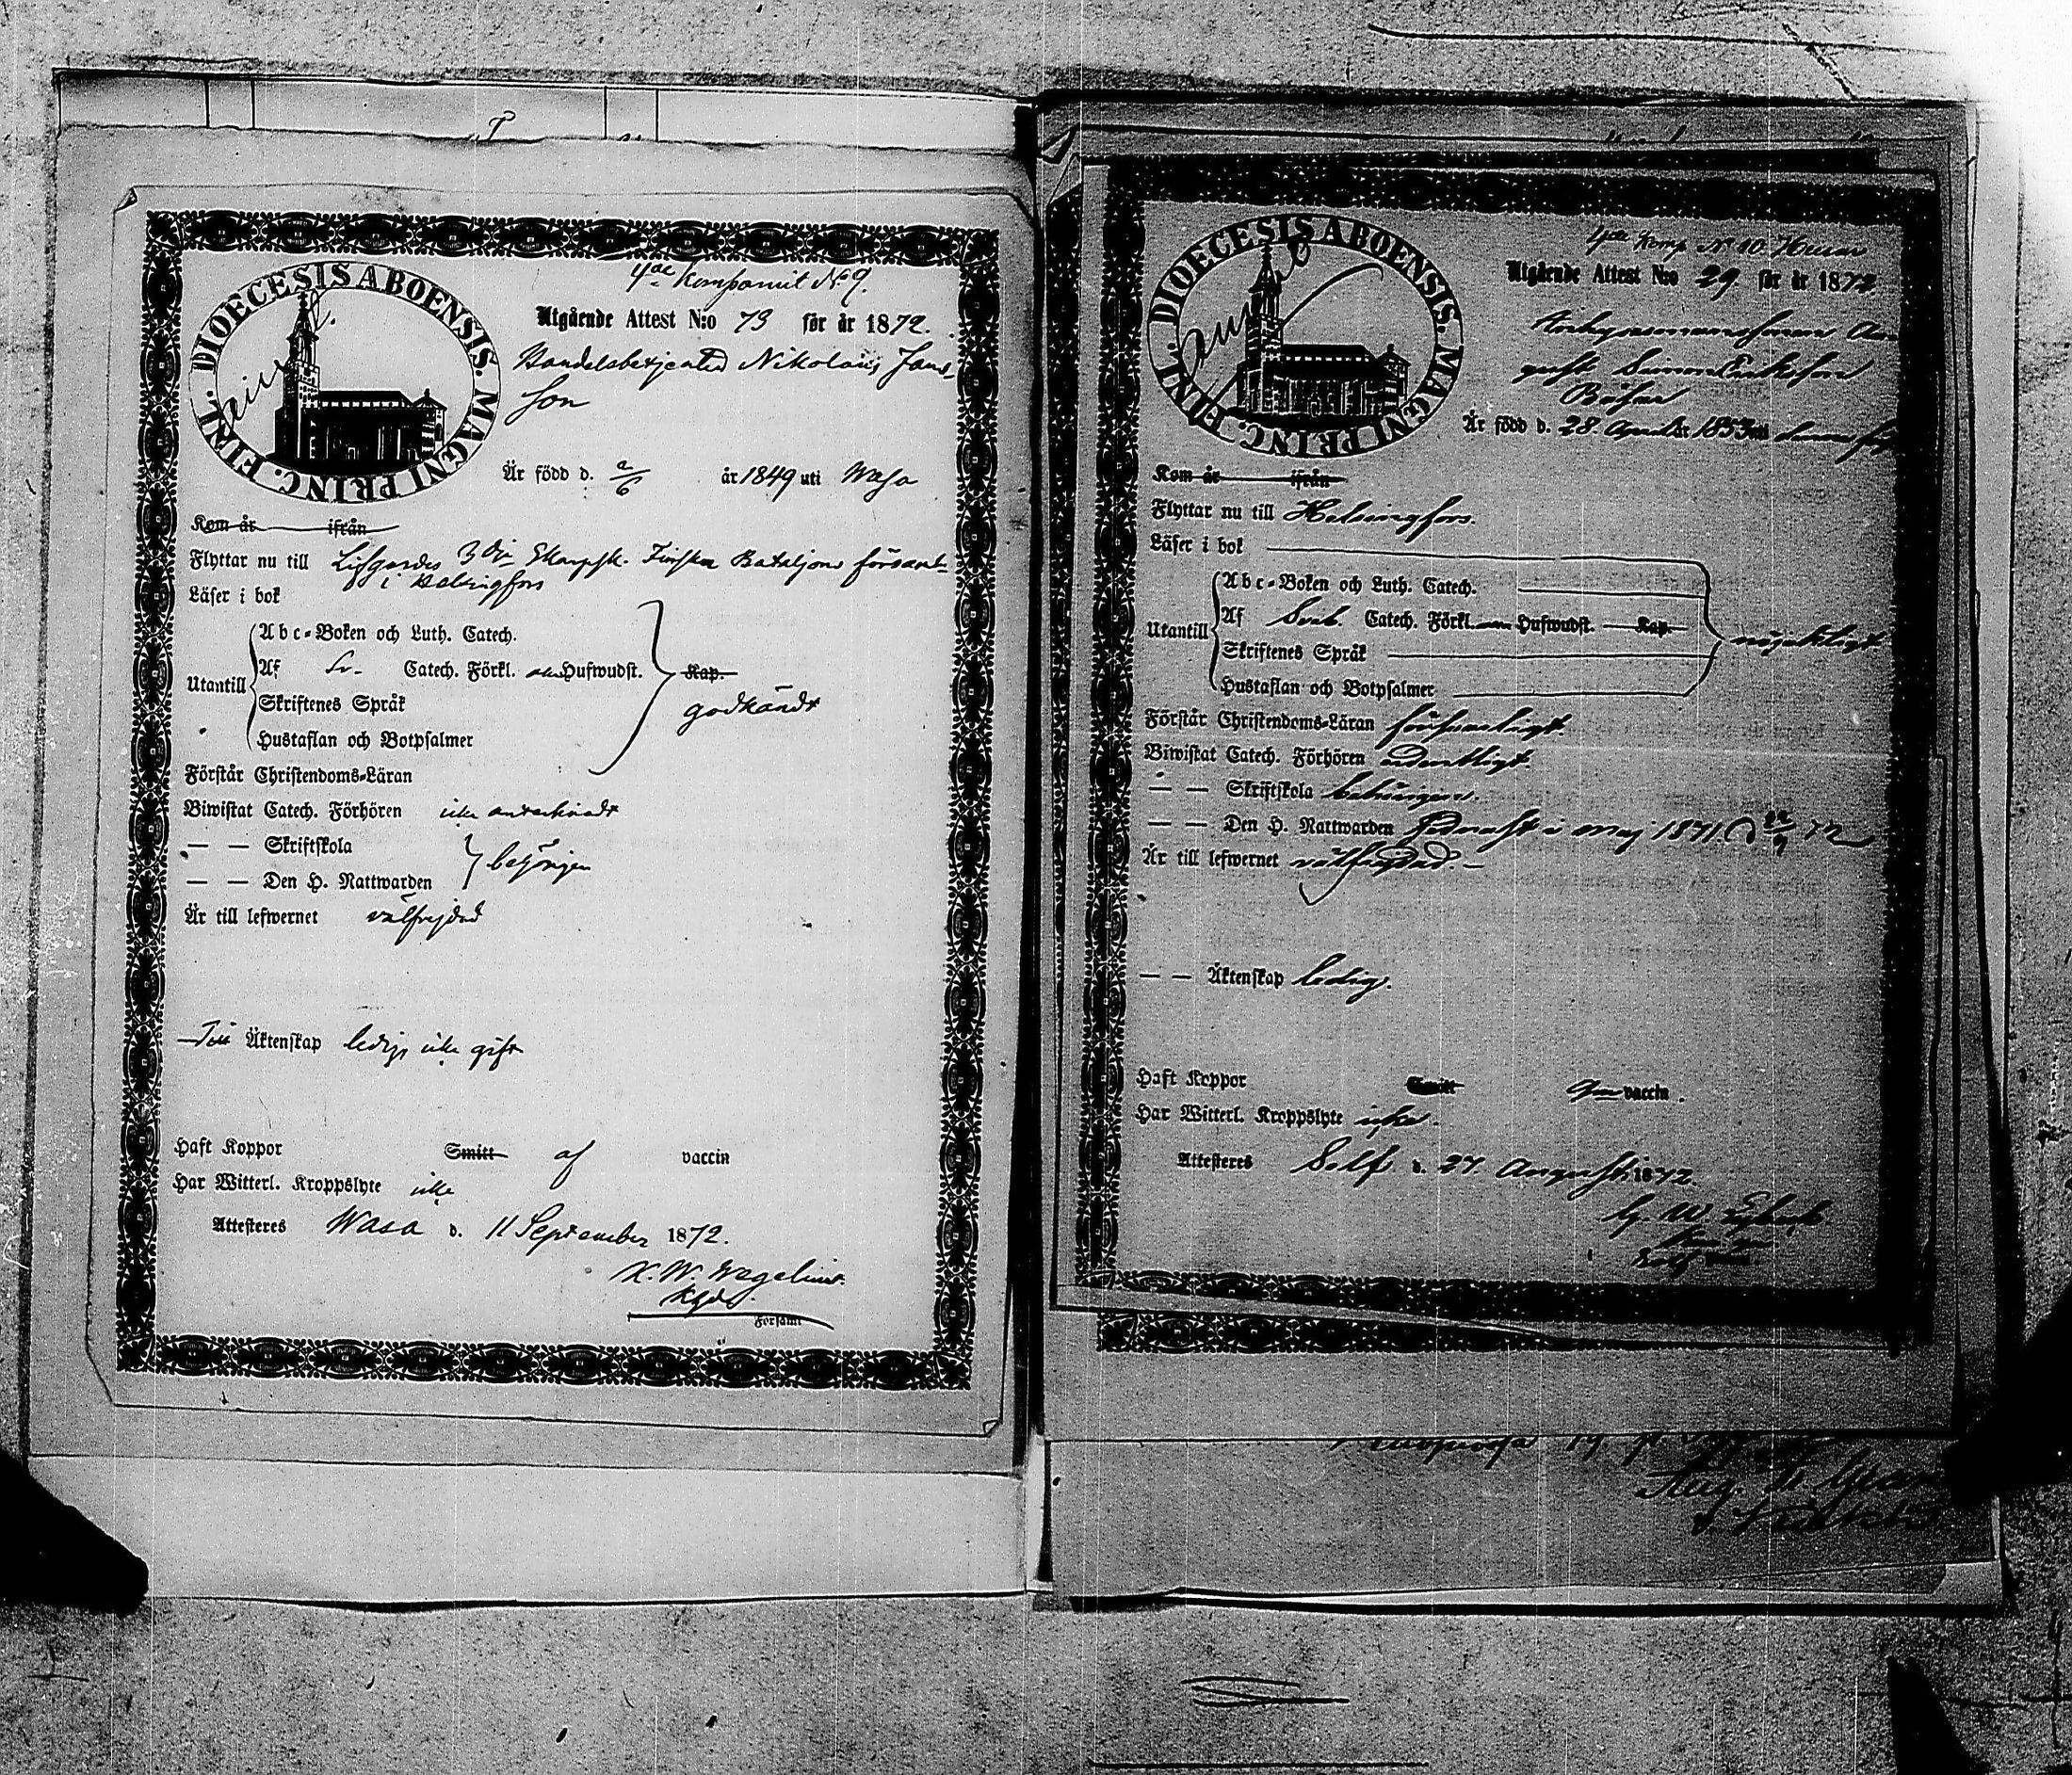 DIOECESIS ABOENSIS. MAGNI PRINC. FINL.
4de Kompaniit No 9.
Utgående Attest N:o 73 för år 1872.
Handelsbetjenten Nikolaus Jans-
son
Är född d. 2/6 år 1849 uti Wasa
Kom år ifrån
Flyttar nu till Lifgardes 3dje Skarpsk. Finska Bataljons församl.
i Helsingfors
Läser i bok
Abc-Boken och Luth. Catech.
Utantill Af Sv. Catech. Förkl. Hufwudst. Kap.
Skriftenes Språk
godkändt
Hustaflan och Botpsalmer
Förstår Christendoms-Läran
Biwistat Catech. Förhören icke antecknadt
— — Skriftskola
behörigen
— — Den H. Nattwarden
Är till lefwernet välfrejdad
Till Äktenskap ledig, icke gift
Haft Koppor Smitt af vaccin
Har Witterl. Kroppslyte icke
Attesteres Wasa d. 11 September 1872.
K. W. Wegelius
Församl

DIOECESIS ABOENSIS. MAGNI PRINC. FINL.
4de Komp No 10.
Utgående Attest N:o 29. för år 1872.
gust Simon Eriksson
Är född d. 28 April år 1853 uti denna för
Kom år ifrån
Flyttar nu till Helsingfors.
Läser i bok
Abc-Boken och Luth. Catech.
Utantill Af Sveb. Catech. Förkl. Hufwudst. Kap.
nöjaktligt
Skriftenes Språk
Hustaflan och Botpsalmer
Förstår Christendoms-Läran försvarligt.
Biwistat Catech. Förhören ordentligt.
— — Skriftskola behörigen.
— — Den H. Nattwarden sednast i maj 1871.
Är till lefwernet välfrejdad. —
— — Äktenskap ledig.
Haft Koppor Smitt vaccin.
Har Witterl. Kroppslyte icke.
Attesteres Solf d. 27 Augusti 1872.